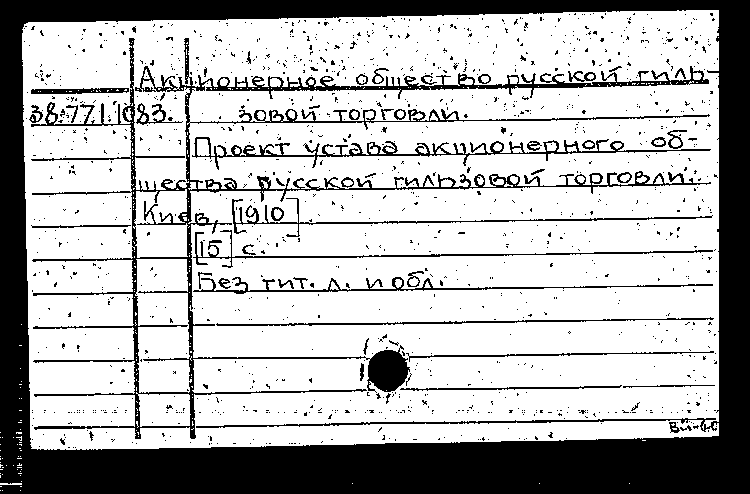 Акционерное общество русской гиль-
38.77.1.1083. зовой торговли.
Проект устава акционерного об-
щества русской гильзовой торговли.
Киев, [1910]
[15] с.
Без тит. л. и обл.